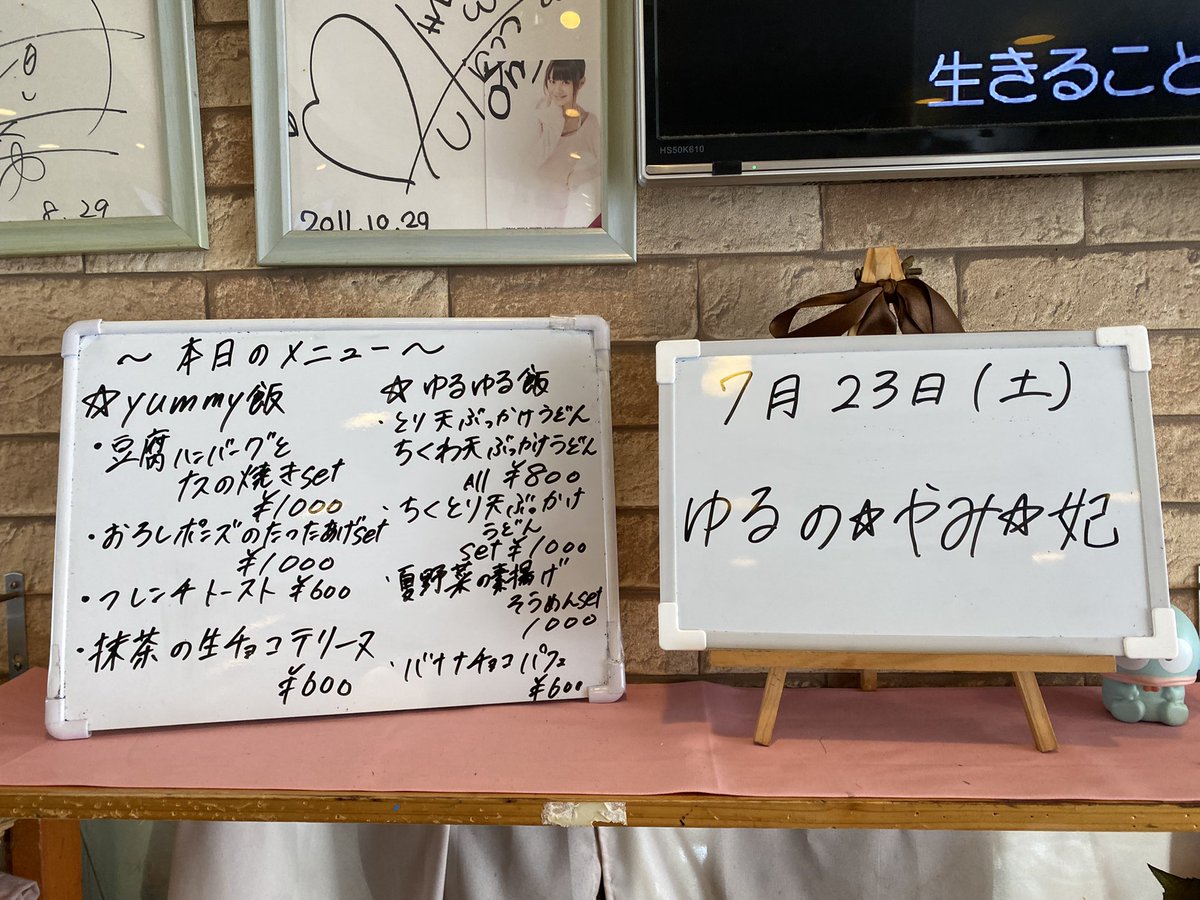 8.29
2011.10.29
生きること
HS50K610
～ 本日のメニュー ～
☆yummy飯
・豆腐ハンバーグと
ナスの焼きset
¥1000
・おろしポンズのたったあげset
¥1000
・フレンチトースト ¥600
・抹茶の生チョコテリーヌ
¥600
☆ゆるゆる飯
・とり天ぶっかけうどん
ちくわ天ぶっかけうどん
All ¥800
・ちくとり天ぶっかけ
うどん
set ¥1000
・夏野菜の素揚げ
そうめんset
1000
・バナナチョコパフェ
¥600
7月23日(土)
ゆるの☆やみ☆妃